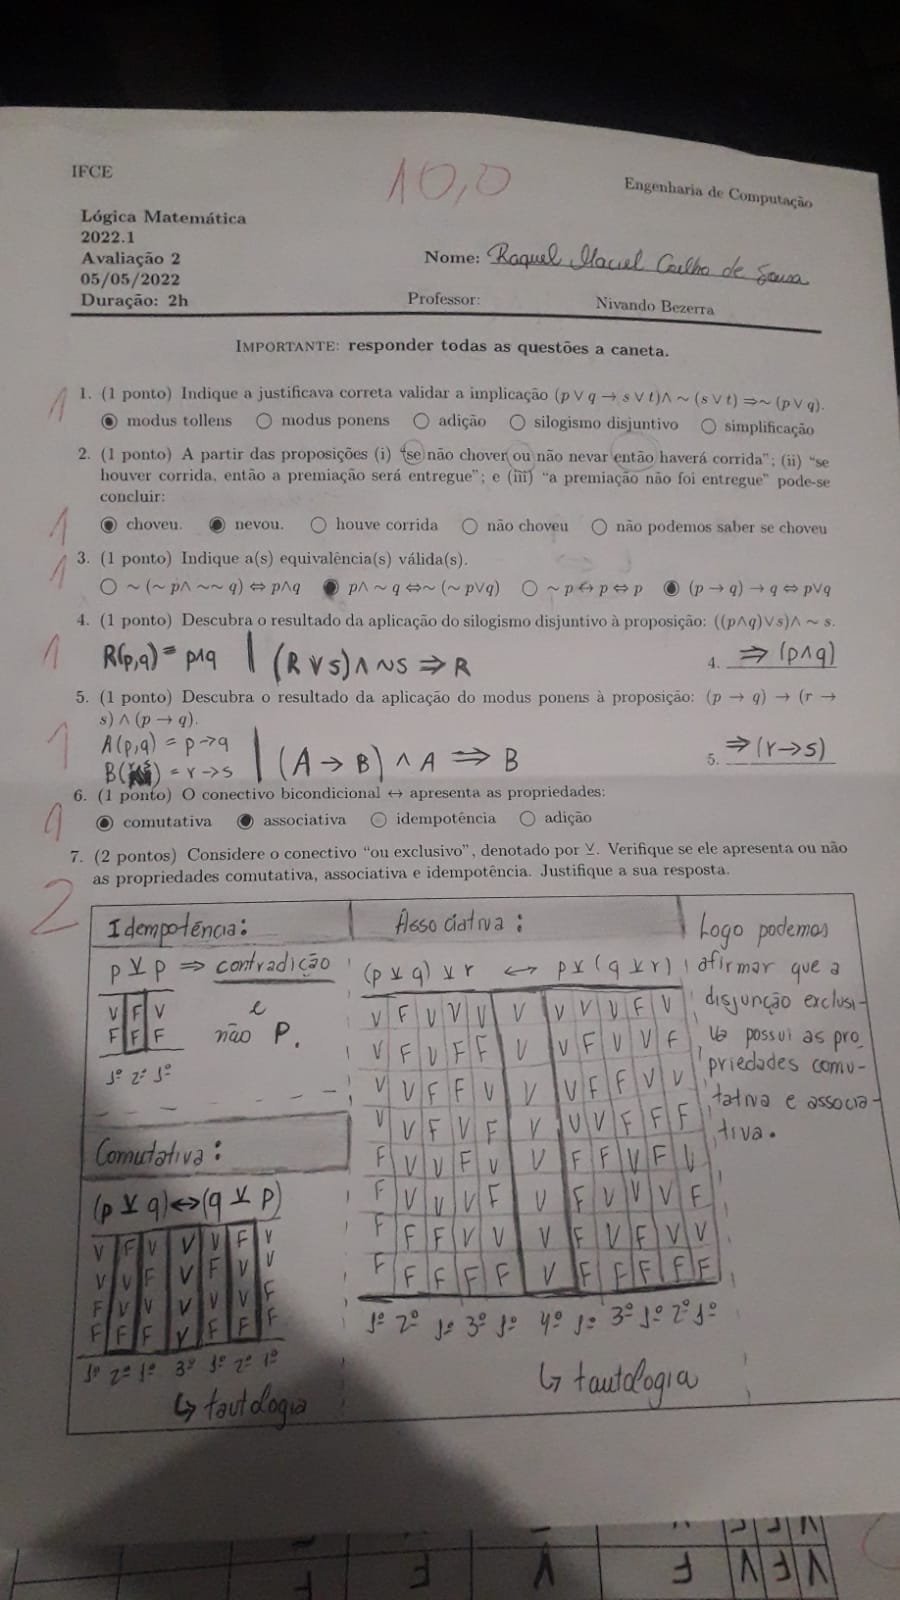 IFCE
10,0
Engenharia de Computação
Lógica Matemática
2022.1
Avaliação 2
05/05/2022
Duração: 2h
Nome: Raquel Maciel Coelho de Sousa
Professor: Nivando Bezerra
IMPORTANTE: responder todas as questões a caneta.
1
1. (1 ponto) Indique a justificava correta validar a implicação (p ∨ q → s ∨ t)∧ ~ (s ∨ t) ⇒~ (p ∨ q).
◉ modus tollens ○ modus ponens ○ adição ○ silogismo disjuntivo ○ simplificação
2. (1 ponto) A partir das proposições (i) "se não chover ou não nevar então haverá corrida"; (ii) "se
houver corrida, então a premiação será entregue"; e (iii) "a premiação não foi entregue" pode-se
concluir:
1
◉ choveu. ◉ nevou. ○ houve corrida ○ não choveu ○ não podemos saber se choveu
1
3. (1 ponto) Indique a(s) equivalência(s) válida(s).
○ ~ (~ p∧ ~~ q) ⇔ p∧q ◉ p∧ ~ q ⇔~ (~ p∨q) ○ ~ p ↔ p ⇔ p ◉ (p → q) → q ⇔ p∨q
4. (1 ponto) Descubra o resultado da aplicação do silogismo disjuntivo à proposição: ((p∧q)∨s)∧ ~ s.
1
R(p,q) = p∧q | (R ∨ s) ∧ ~s ⇒ R
4. ⇒ (p∧q)
5. (1 ponto) Descubra o resultado da aplicação do modus ponens à proposição: (p → q) → (r →
s) ∧ (p → q).
1
A(p,q) = p→q | (A → B) ∧ A ⇒ B
B( ) = r→s
5. ⇒ (r→s)
6. (1 ponto) O conectivo bicondicional ↔ apresenta as propriedades:
1
◉ comutativa ◉ associativa ○ idempotência ○ adição
7. (2 pontos) Considere o conectivo "ou exclusivo", denotado por ⊻. Verifique se ele apresenta ou não
as propriedades comutativa, associativa e idempotência. Justifique a sua resposta.
2
Idempotência:
p ⊻ p ⇒ contradição
V F V e
F F F não P.
1º 2º 1º
Comutativa:
(p ⊻ q)↔(q ⊻ p)
V F V V V F V
V V F V F V V
F V V V V V F
F F F V F F F
1º 2º 1º 3º 1º 2º 1º
↳ tautologia
Associativa:
(p ⊻ q) ⊻ r ↔ p ⊻ (q ⊻ r)
V F V V V V V V V F V
V F V F F V V F V V F
V V F F V V V F F V V
V V F V F V V V F F F
F V V F V V F F V F V
F V V V F V F V V V F
F F F V V V F V F V V
F F F F F V F F F F F
1º 2º 1º 3º 1º 4º 1º 3º 1º 2º 1º
↳ tautologia
Logo podemos
afirmar que a
disjunção exclusi-
va possui as pro
priedades comu-
tativa e associa-
tiva.
V F
V F V F V F V